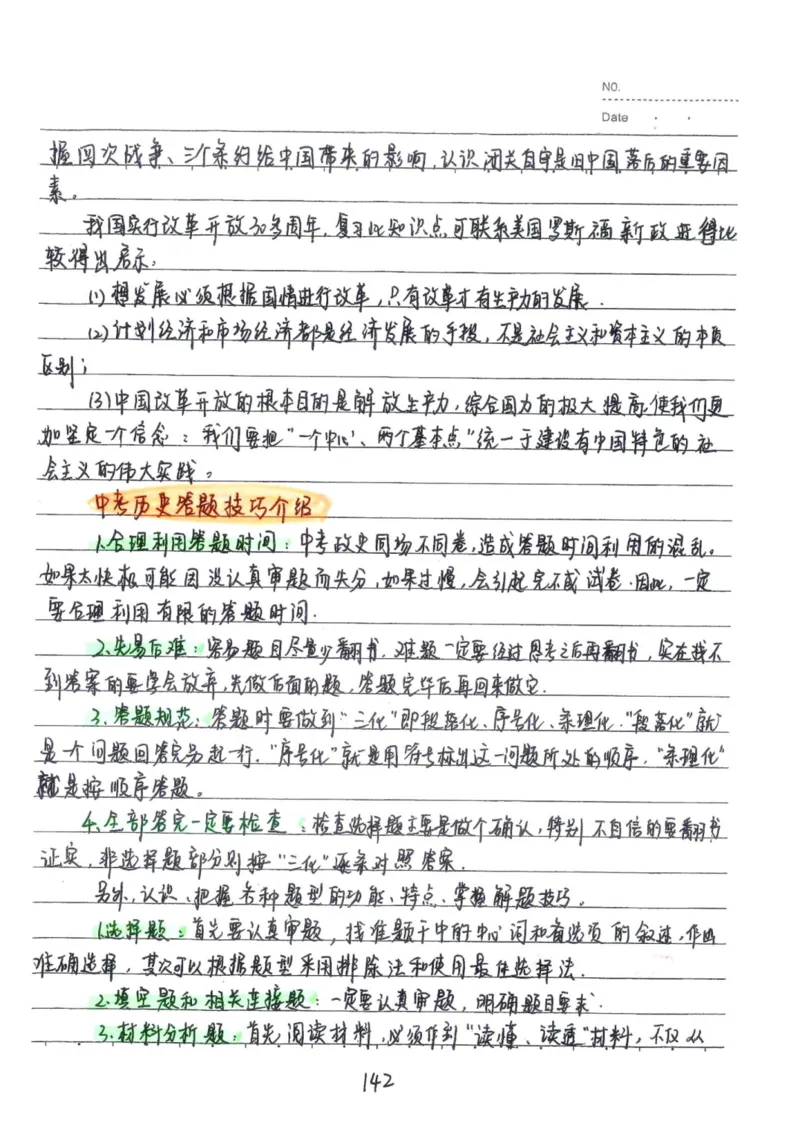 NO.
Date
握四次战争、三个条约给中国带来的影响,认识闭关自守是旧中国落后的重要因
素。
我国实行改革开放30多周年,复习此知识点可联系美国罗斯福新政进行比
较得出启示:
(1)想发展必须根据国情进行改革,只有改革才有生产力的发展.
(2)计划经济和市场经济都是经济发展的手段,不是社会主义和资本主义的本质
区别;
(3)中国改革开放的根本目的是解放生产力,综合国力的极大提高,使我们更
加坚定一个信念:我们要把"一个中心、两个基本点"统一于建设有中国特色的社
会主义的伟大实践。
中考历史答题技巧介绍
1.合理利用答题时间:中考政史同场不同卷,造成答题时间利用的混乱。
如果太快极可能因没认真审题而失分,如果过慢,会引起完不成试卷.因此,一定
要合理利用有限的答题时间.
2.先易后难:容易题目尽量少翻书,难题一定要经过思考之后再翻书,实在找不
到答案的要学会放弃,先做后面的题,答题完毕后再回来做它.
3.答题规范:答题时要做到"三化"即段落化、序号化、条理化."段落化"就
是一个问题回答完另起一行."序号化"就是用符号标出这一问题所处的顺序."条理化"
就是按顺序答题。
4.全部答完一定要检查:检查选择题主要是做个确认,特别不自信的要翻书
证实,非选择题部分则按"三化"逐条对照答案.
另外,认识、把握各种题型的功能、特点、掌握解题技巧。
1.选择题:首先要认真审题,找准题干中的中心词和备选项的叙述,作出
准确选择,其次可以根据题型采用排除法和使用最佳选择法.
2.填空题和相关连接题:一定要认真审题,明确题目要求.
3.材料分析题:首先阅读材料,必须作到"读懂、读透"材料,不仅从
142